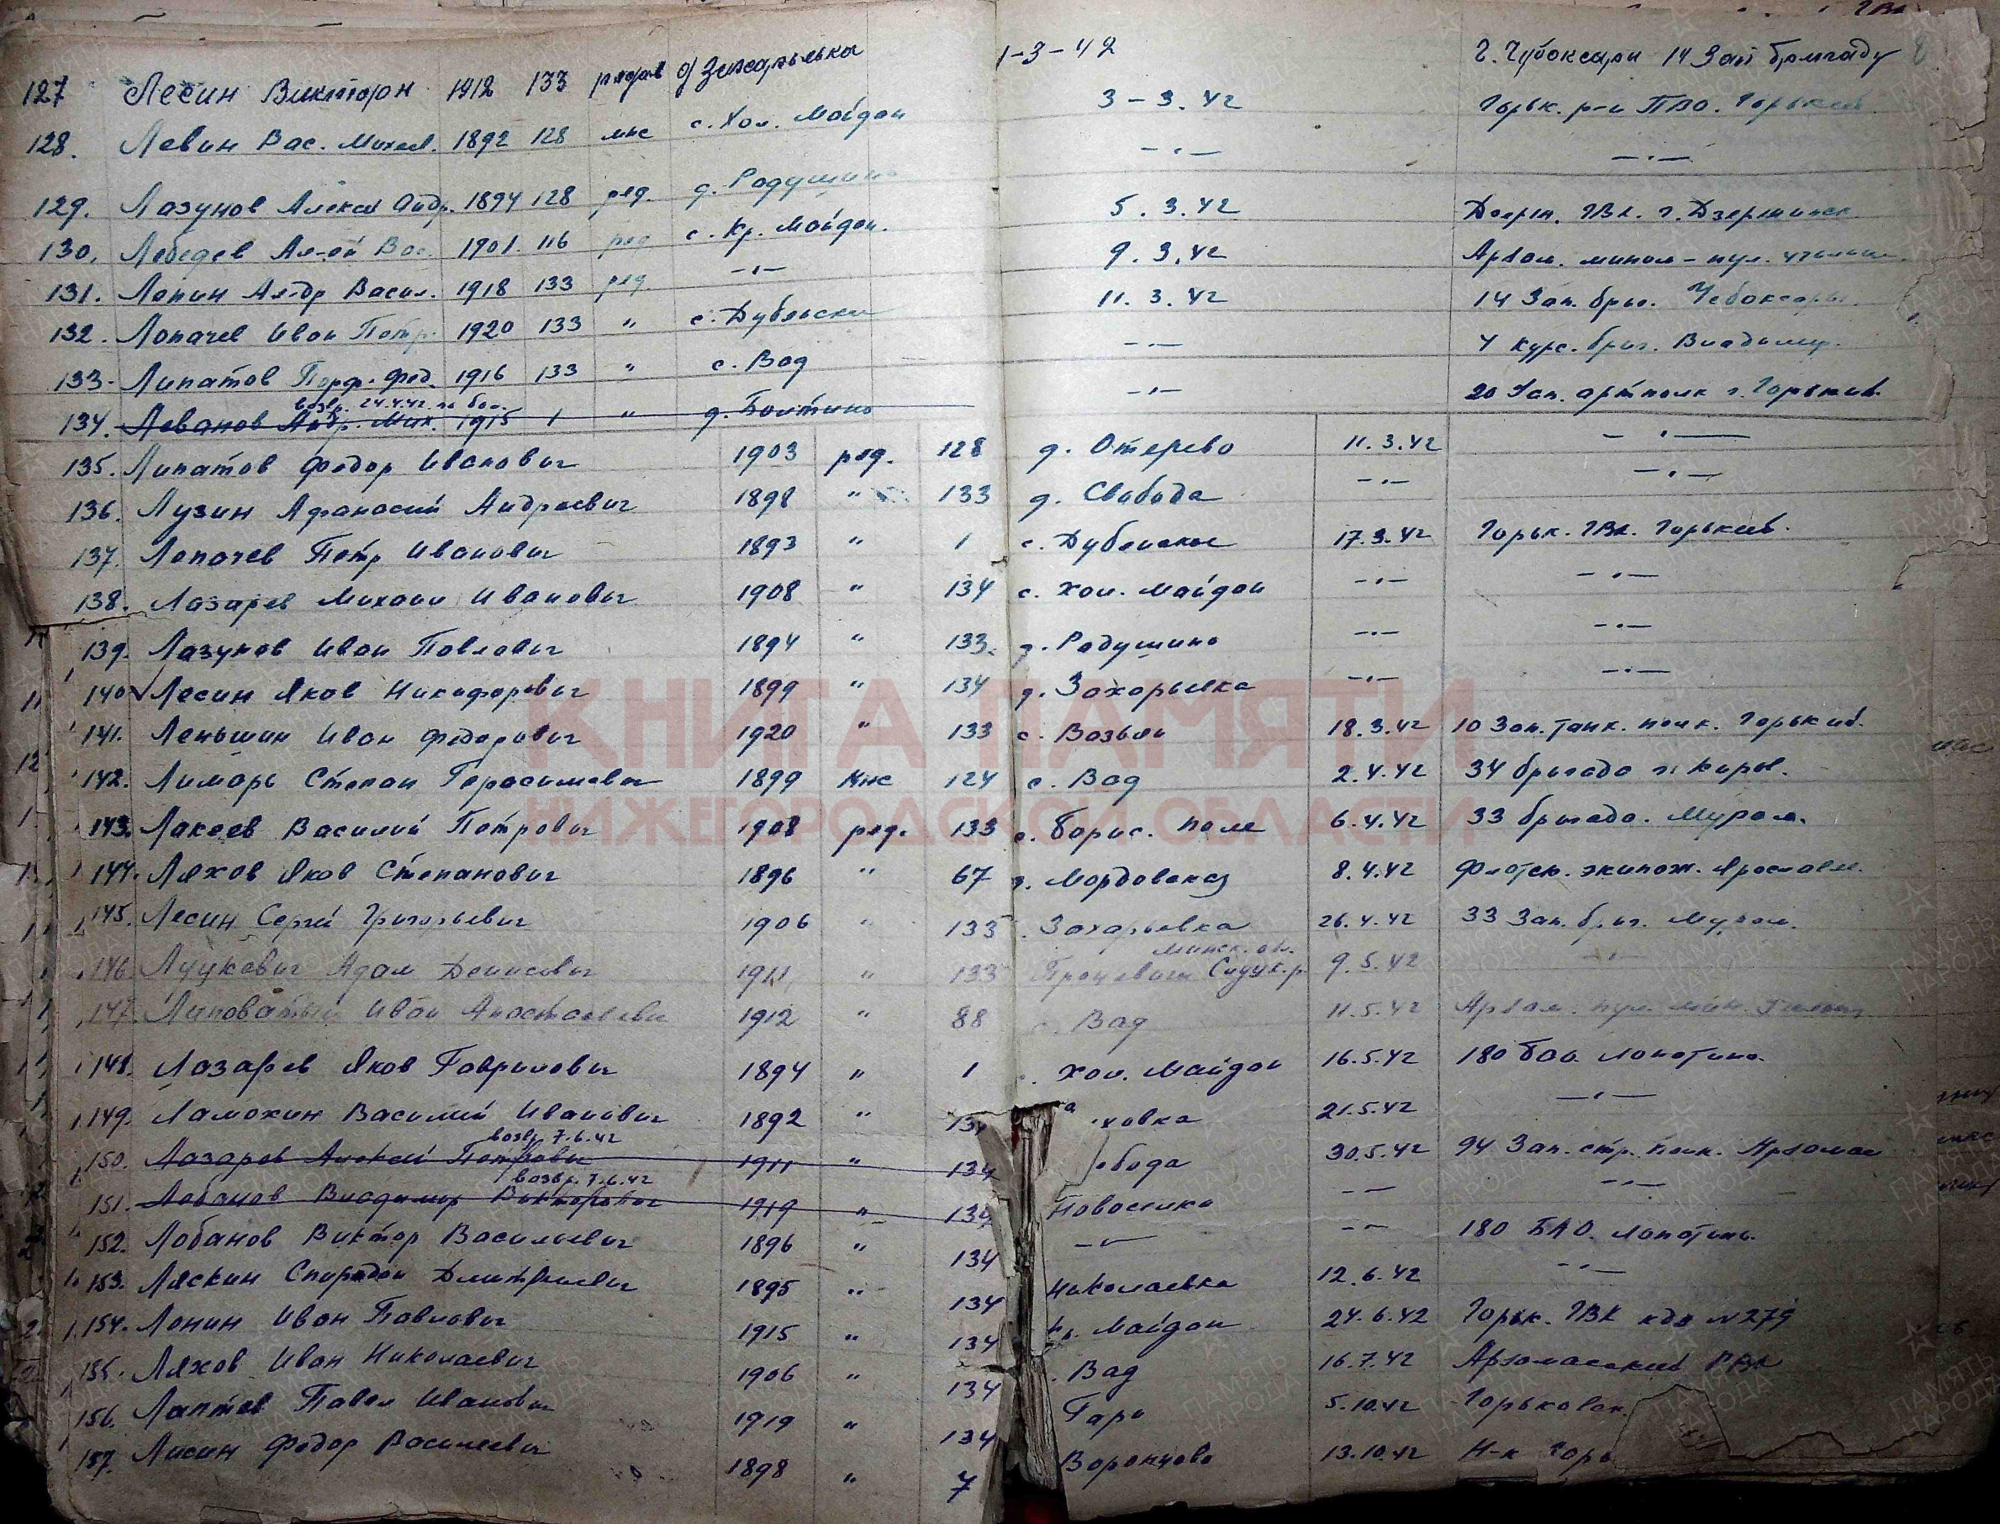 127 Лесин Виктор 1912 133 рядов д. Захарьевка 1-3-42 г. Чебоксари 14 Зап бригаду
128. Левин Вас. Михал. 1892 128 мнс с. Хол. Майдан 3-3.42 Горьк. р-н ПВО. Горький
129. Лазунов Алексей Андр. 1894 128 ряд. д. Радушино -"- -"-
130. Лебедев Ал-ей Вас. 1901. 116 ряд с. Кр. Майдан. 5.3.42 Дзерж. ГВК. г. Дзержинск
131. Лопин Ал-др Васил. 1918 133 ряд -"- 9.3.42 Арзам. мином-пул. училищ.
132. Лопачев Иван Петр. 1920 133 " с. Дубенское 11.3.42 14 Зап. бриг. Чебоксары
133. Липатов Порф. Фед. 1916 133 " с. Вад -"- 4 курс. бриг. Владимир.
возвр. 24.4.42 по бол.
134. Леванов Андр. Мих. 1915 1 " д. Болтино -"- 20 Зап. артполк г. Горький.
135. Липатов Федор Иванович 1903 ряд. 128 д. Отерево 11.3.42 -"-
136. Лузин Афанасий Андреевич 1898 " 133 д. Свобода -"- -"-
137. Лопачев Петр Иванович 1893 " 1 с. Дубенское 17.3.42 Горьк. ГВК. Горький.
138. Лазарев Михаил Иванович 1908 " 134 с. Хол. Майдан -"- -"-
139. Лазунов Иван Павлович 1894 " 133. д. Радушино -"- -"-
140 Лесин Яков Никифорович 1899 " 134 д. Захарьевка -"- -"-
141. Леньшин Иван Федорович 1920 " 133 с. Возьян 18.3.42 10 Зап. танк. полк. Горький.
142. Лимарь Степан Герасимович 1899 мнс 124 с. Вад 2.4.42 34 бригада г. Киров.
143. Лакеев Василий Петрович 1908 ряд. 133 с. Борис. поле 6.4.42 33 бригада. Муром.
144. Ляхов Яков Степанович 1896 " 67 д. Мордовская 8.4.42 Флотск. экипаж. Ярославл.
145. Лесин Сергей Григорьевич 1906 " 133 Захарьевка 26.4.42 33 Зап. бриг. Муром.
Минск. обл.
146. Луцкевич Адам Денисович 1911 " 133 9.5.42 -"-
147. Липоватый Иван Анастасович 1912 " 88 с. Вад 11.5.42 Арзам. пул. мин. училищ
148. Лазарев Яков Гаврилович 1894 " 1 Хол. Майдан 16.5.42 180 бао. Лопатино.
149. Ламохин Василий Иванович 1892 " 134 ховка 21.5.42 -"-
возвр. 7.6.42
150. Лазарев Алексей Петрович 1911 " 134 обода 30.5.42 94 Зап. стр. полк. Арзамас
возвр. 7.6.42
151. Лобанов Владимир Викторович 1919 " 134 Новоселка -- -"-
152. Лобанов Виктор Васильевич 1896 " 134 -"- -- 180 БАО. Лопатино.
153. Ляскин Спиридон Дмитриевич 1895 " 134 Николаевка 12.6.42 -"-
154. Лонин Иван Павлович 1915 " 134 Кр. Майдан 24.6.42 Горьк. ГВК кда №279
155. Ляхов Иван Николаевич 1906 " 134 Вад 16.7.42 Арзамасский РВК
156. Лаптев Павел Иванович 1919 " 134 Гари 5.10.42 Горьковск.
157. Лисин Федор Васильевич 1898 " 7 Воронцово 13.10.42 Н-к Горь
КНИГА ПАМЯТИ
НИЖЕГОРОДСКОЙ ОБЛАСТИ
ПАМЯТЬ НАРОДА